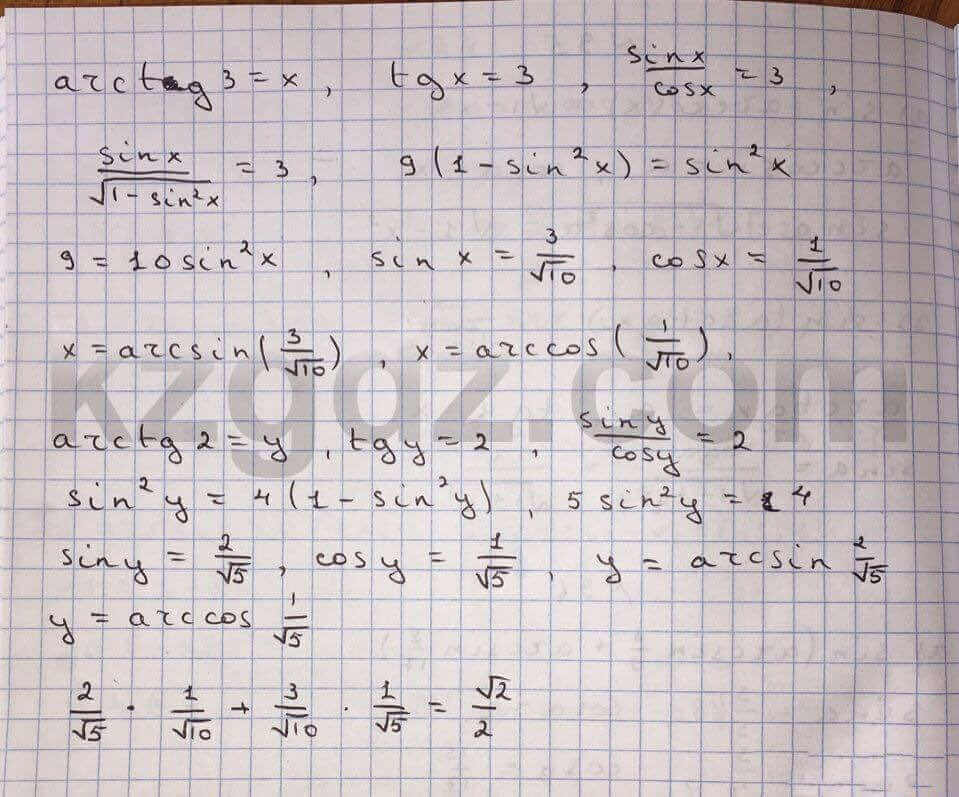 arctg 3 = x, tg x = 3, sin x / cos x = 3,
sin x / √(1 - sin²x) = 3, 9(1 - sin²x) = sin²x
9 = 10 sin²x, sin x = 3/√10, cos x = 1/√10
x = arcsin(3/√10), x = arccos(1/√10),
kzgdz.com
arctg 2 = y, tg y = 2, sin y / cos y = 2
sin²y = 4(1 - sin²y), 5 sin²y = 4
sin y = 2/√5, cos y = 1/√5, y = arcsin 2/√5
y = arccos 1/√5
2/√5 · 1/√10 + 3/√10 · 1/√5 = √2/2